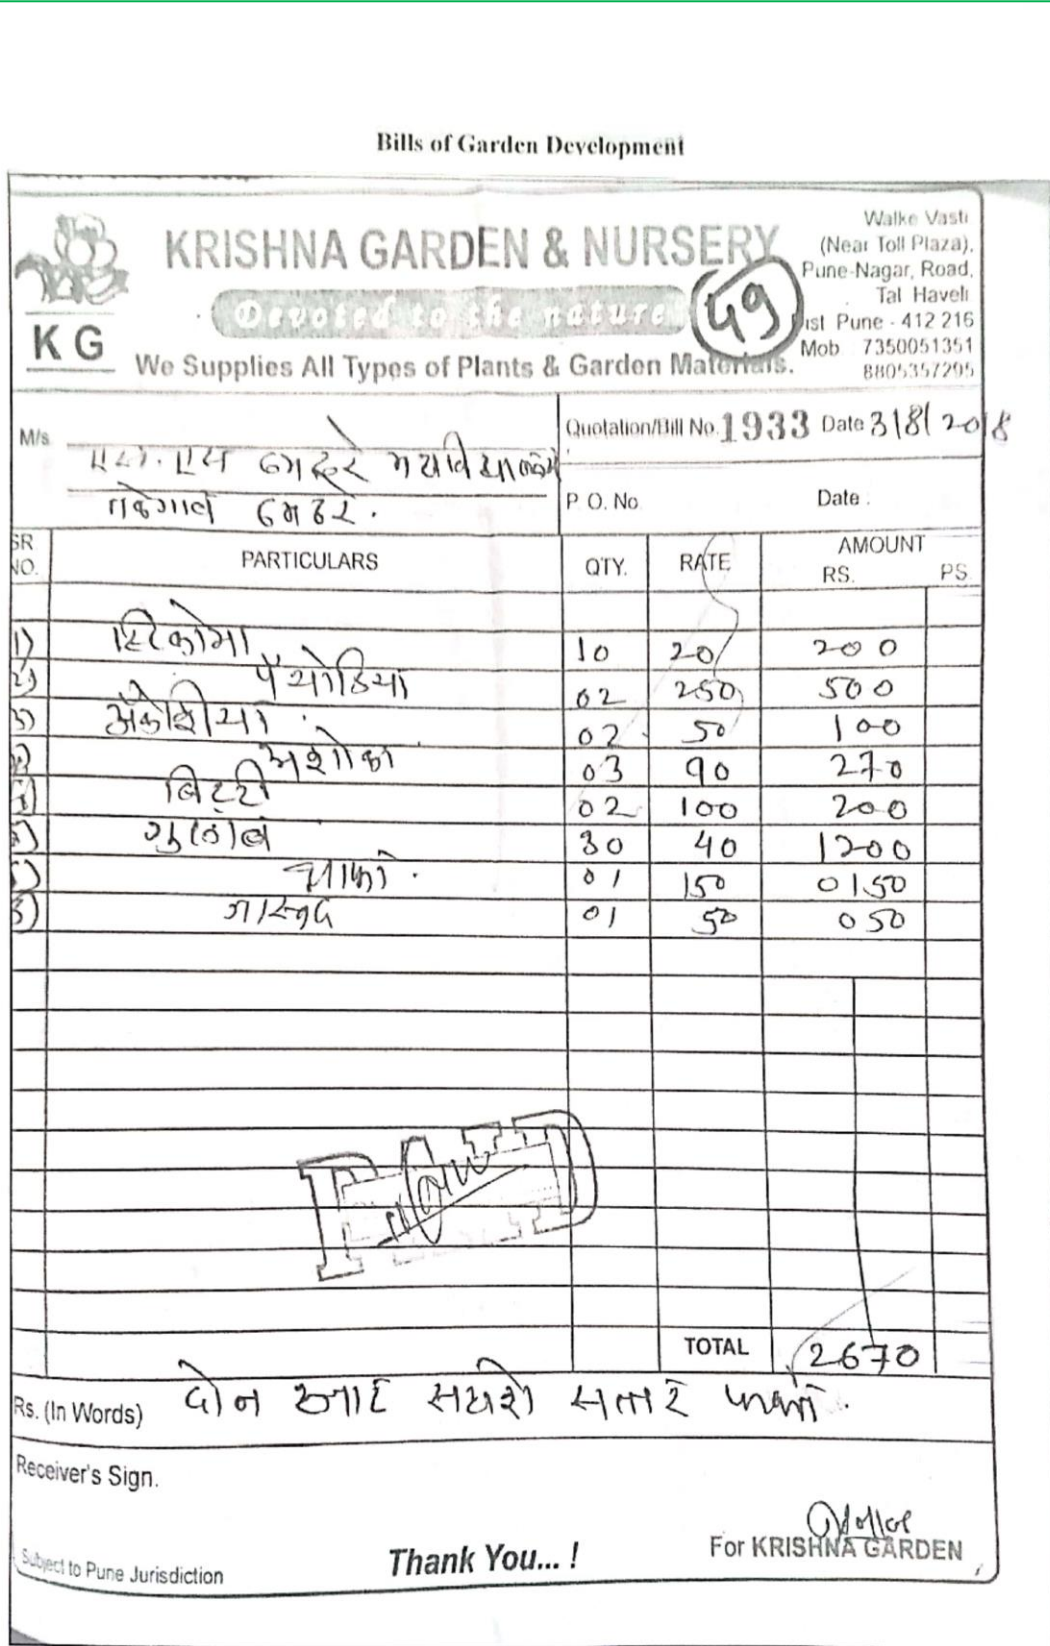 Bills of Garden Development
KRISHNA GARDEN & NURSERY
Devoted to the nature
KG
We Supplies All Types of Plants & Garden Materials.
49
Walke Vasti
(Near Toll Plaza),
Pune-Nagar, Road,
Tal Haveli
ist Pune - 412 216
Mob 7350051351
8805357295
M/s
Quotation/Bill No. 1933 Date 3/8/2018
P. O. No. Date :
SR NO. PARTICULARS QTY. RATE AMOUNT RS. PS.
1) टिकोमा 10 20 200
2) 02 250 500
3) 02 50 100
अशोका 03 90 270
बिट्टी 02 100 200
गुलाब 30 40 1200
01 150 0150
जास्वंद 01 50 050
PAID
TOTAL 2670
Rs. (In Words) दोन हजार सहाशे सत्तर
Receiver's Sign.
For KRISHNA GARDEN
Thank You... !
Subject to Pune Jurisdiction